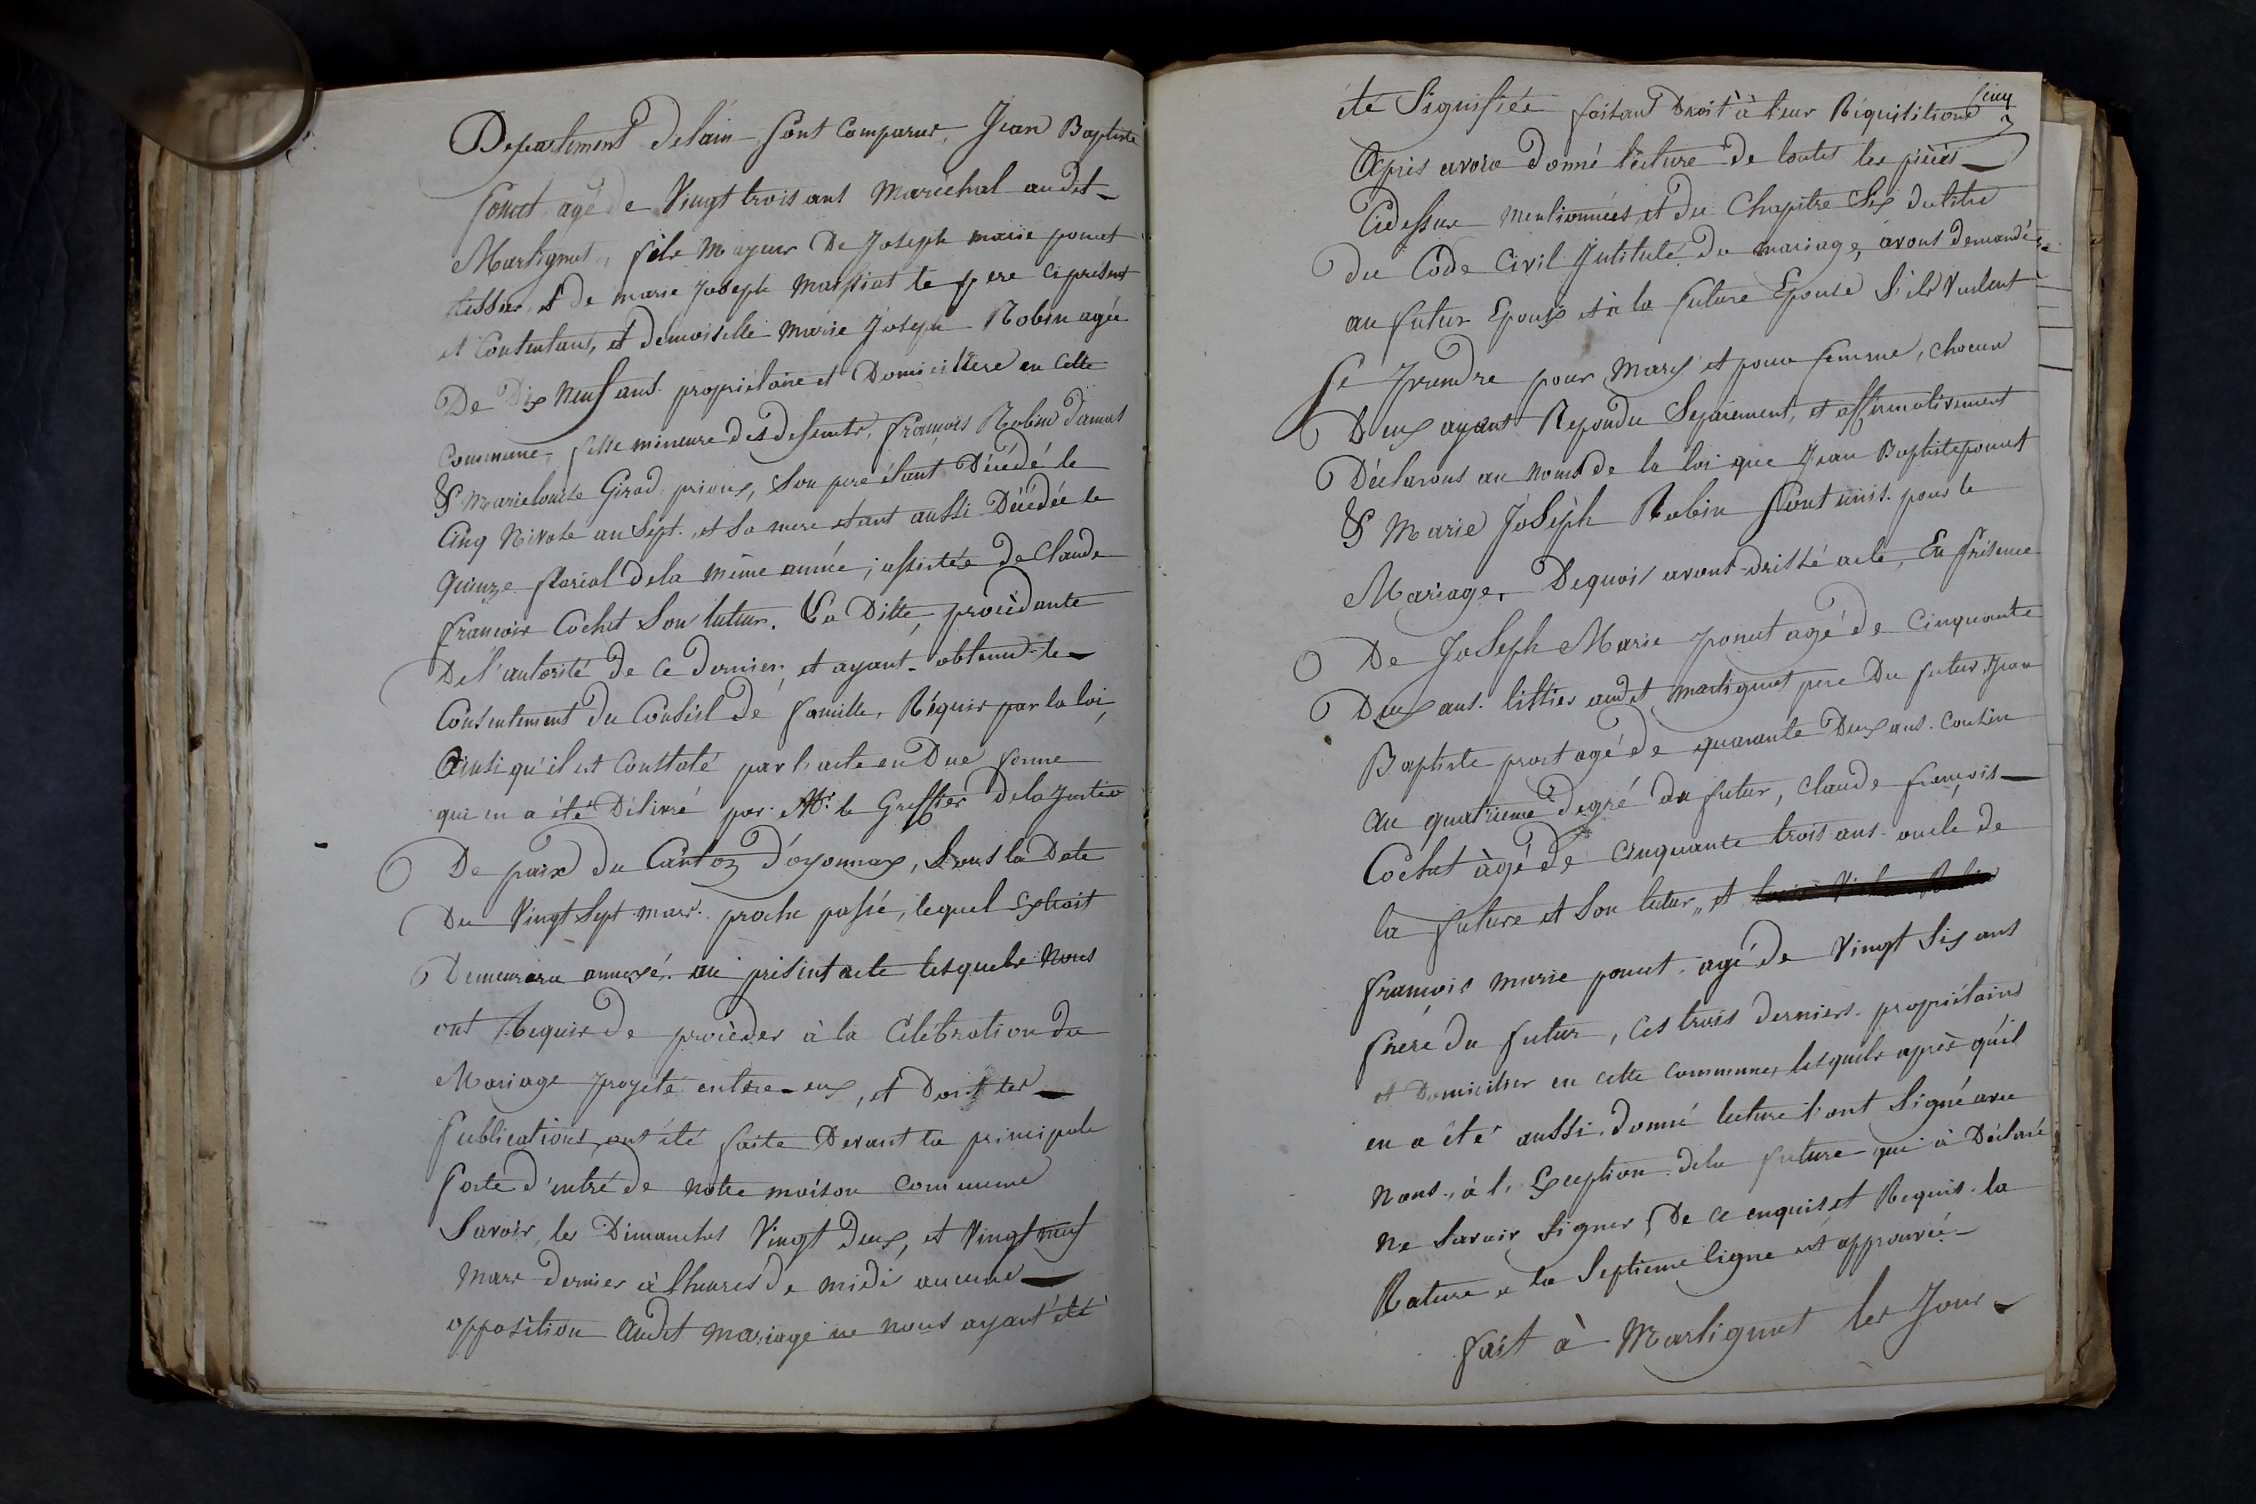 Departement delain sont Comparus, Jean Baptiste
ponut agé de Vingt trois ans Maréchal audit
Martignat, fils Majeur De Joseph marie ponut
tissier, et de marie Joseph Massiat le pere ci présent
et Contentant, et demoiselle Marie Joseph Robin agée
De Dix neuf ans propriétaire et Domiciliere en cette
Commune, fille mineure des deffunts, françois Robin Damas
& Marie louise Girod prioux, Son pere étant Décédé le
Cinq Nivose an Sept. et Sa mere etant aussi Décédée le
quinze floréal dela même année, assistée de Claude
françois Cochet Son tuteur. La Ditte, procèdante
De l'autorité de ce dernier, et ayant obtenu le
Consentement du Conseil de famille, Réquis par la loi
Ainsi qu'il est Constaté par l'acte en Due forme
qui en a été Délivré par Mr. le Greffier dela Justice
De paix du Canton d'oyonnax, Sous la Date
Du Vingt Sept mars proche passé, lequel Extrait
Demeurera annexé au présent acte lesquels Nous
ont Requis de procèder à la Célébration du
Mariage projeté entre eux, et Dont les
publications ont été faite Devant la principale
porte d'entré de notre maison commune
Savoir, les Dimanches Vingt Deux, et Vingt neuf
Mars dernier à l'heures de midi aucune
opposition audit mariage ne nous ayant été
cinq
été Signifiée faisant Droit à leur Réquisitions
Après avoir donné lecture de toutes les pièces
Cidessus mentionnées et du Chapitre Six dutitre
du Code Civil Intitulé du mariage, avons demandé
au futur Epoux et à la future Epouse S'ils Veulent
Se prendre pour Mary et pour femme, chacun
D'eux ayant Repondu Separement, et affirmativement
Déclarons au nom de la loi que Jean Baptiste ponut
& Marie Joseph Robin Sont unis pour le
Mariage, Dequois avons drissé acte, En présence
De Joseph Marie ponut agé de Cinquante
Deux ans tissier audit Martignat pere Du futur, Jean
Baptiste prost agé de quarante Deux ans Cousin
au quatrieme degré du futur, Claude françois
Cochet àgé de cinquante trois ans oncle de
la future et Son tuteur, et
françois marie ponut agé de Vingt Six ans
frere du futur, ces trois derniers propriétaires
et Domicilier en cette commune, lesquels après qu'il
en a été aussi donné lecture l'ont Signé avec
Nous, à l'Exception dela future qui à Déclaré
Ne Savoir Signer, De ce enquis et Requis la
Rature a la Septieme ligne est approuvée
fait à Martignat les Jour